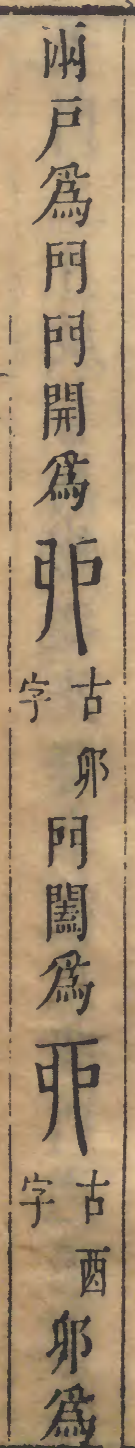 兩戶爲門門開爲戼古卯字門闔爲丣古酉字卯爲